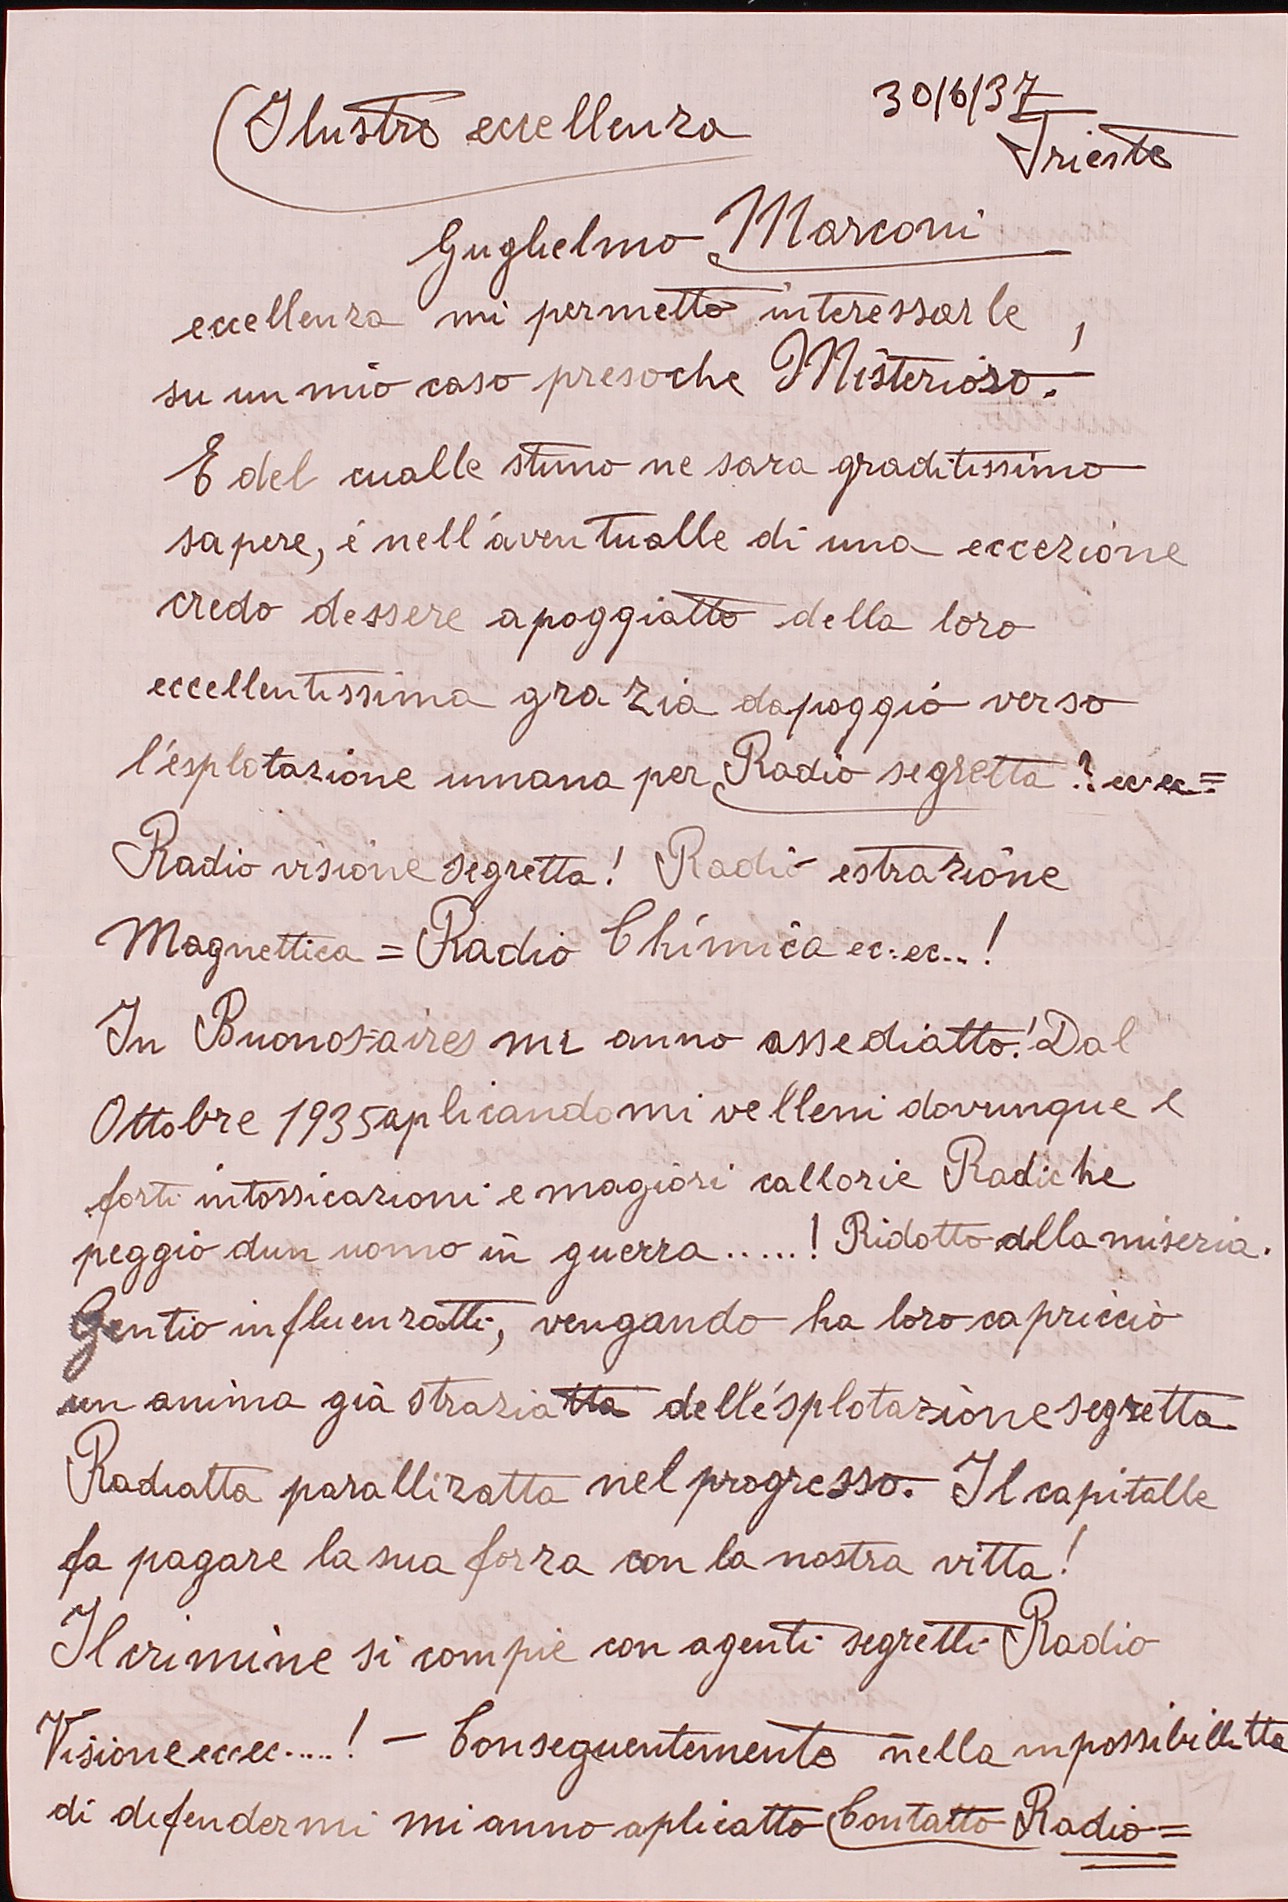 30/6/37
Ilustre eccellenza
Trieste
Guglielmo Marconi
eccellenza mi permetto interessarle,
su un mio caso presoche Misterioso.
E del cualle stimo ne sara graditissimo
sapere, é nell'aventualle di una eccezione
credo dessere apoggiatto della loro
eccellentissima grazia dapoggio verso
l'esplotazione umana per Radio segretta? ec.ec.=
Radio visione segretta! Radio estrazione
Magnettica = Radio Chimica ec.ec..!
In Buonos-aires mi anno assediatto! Dal
Ottobre 1935 aplicandomi velleni dovunque e
forti intossicazioni e magiori callorie Radiche
peggio dun uomo in guerra.....! Ridotto alla miseria.
Gentio influenzatti, vengando ha loro capriccio
un anima già straziatta dell'ésplotazione segretta
Radiatta parallizatta nel progresso. Il capitalle
fa pagare la sua forza con la nostra vitta!
Il crimine si compie con agenti segretti Radio
Visione ec.ec.....! – Conseguentemente nella inpossibillitta
di difendermi mi anno aplicatto Contatto Radio=